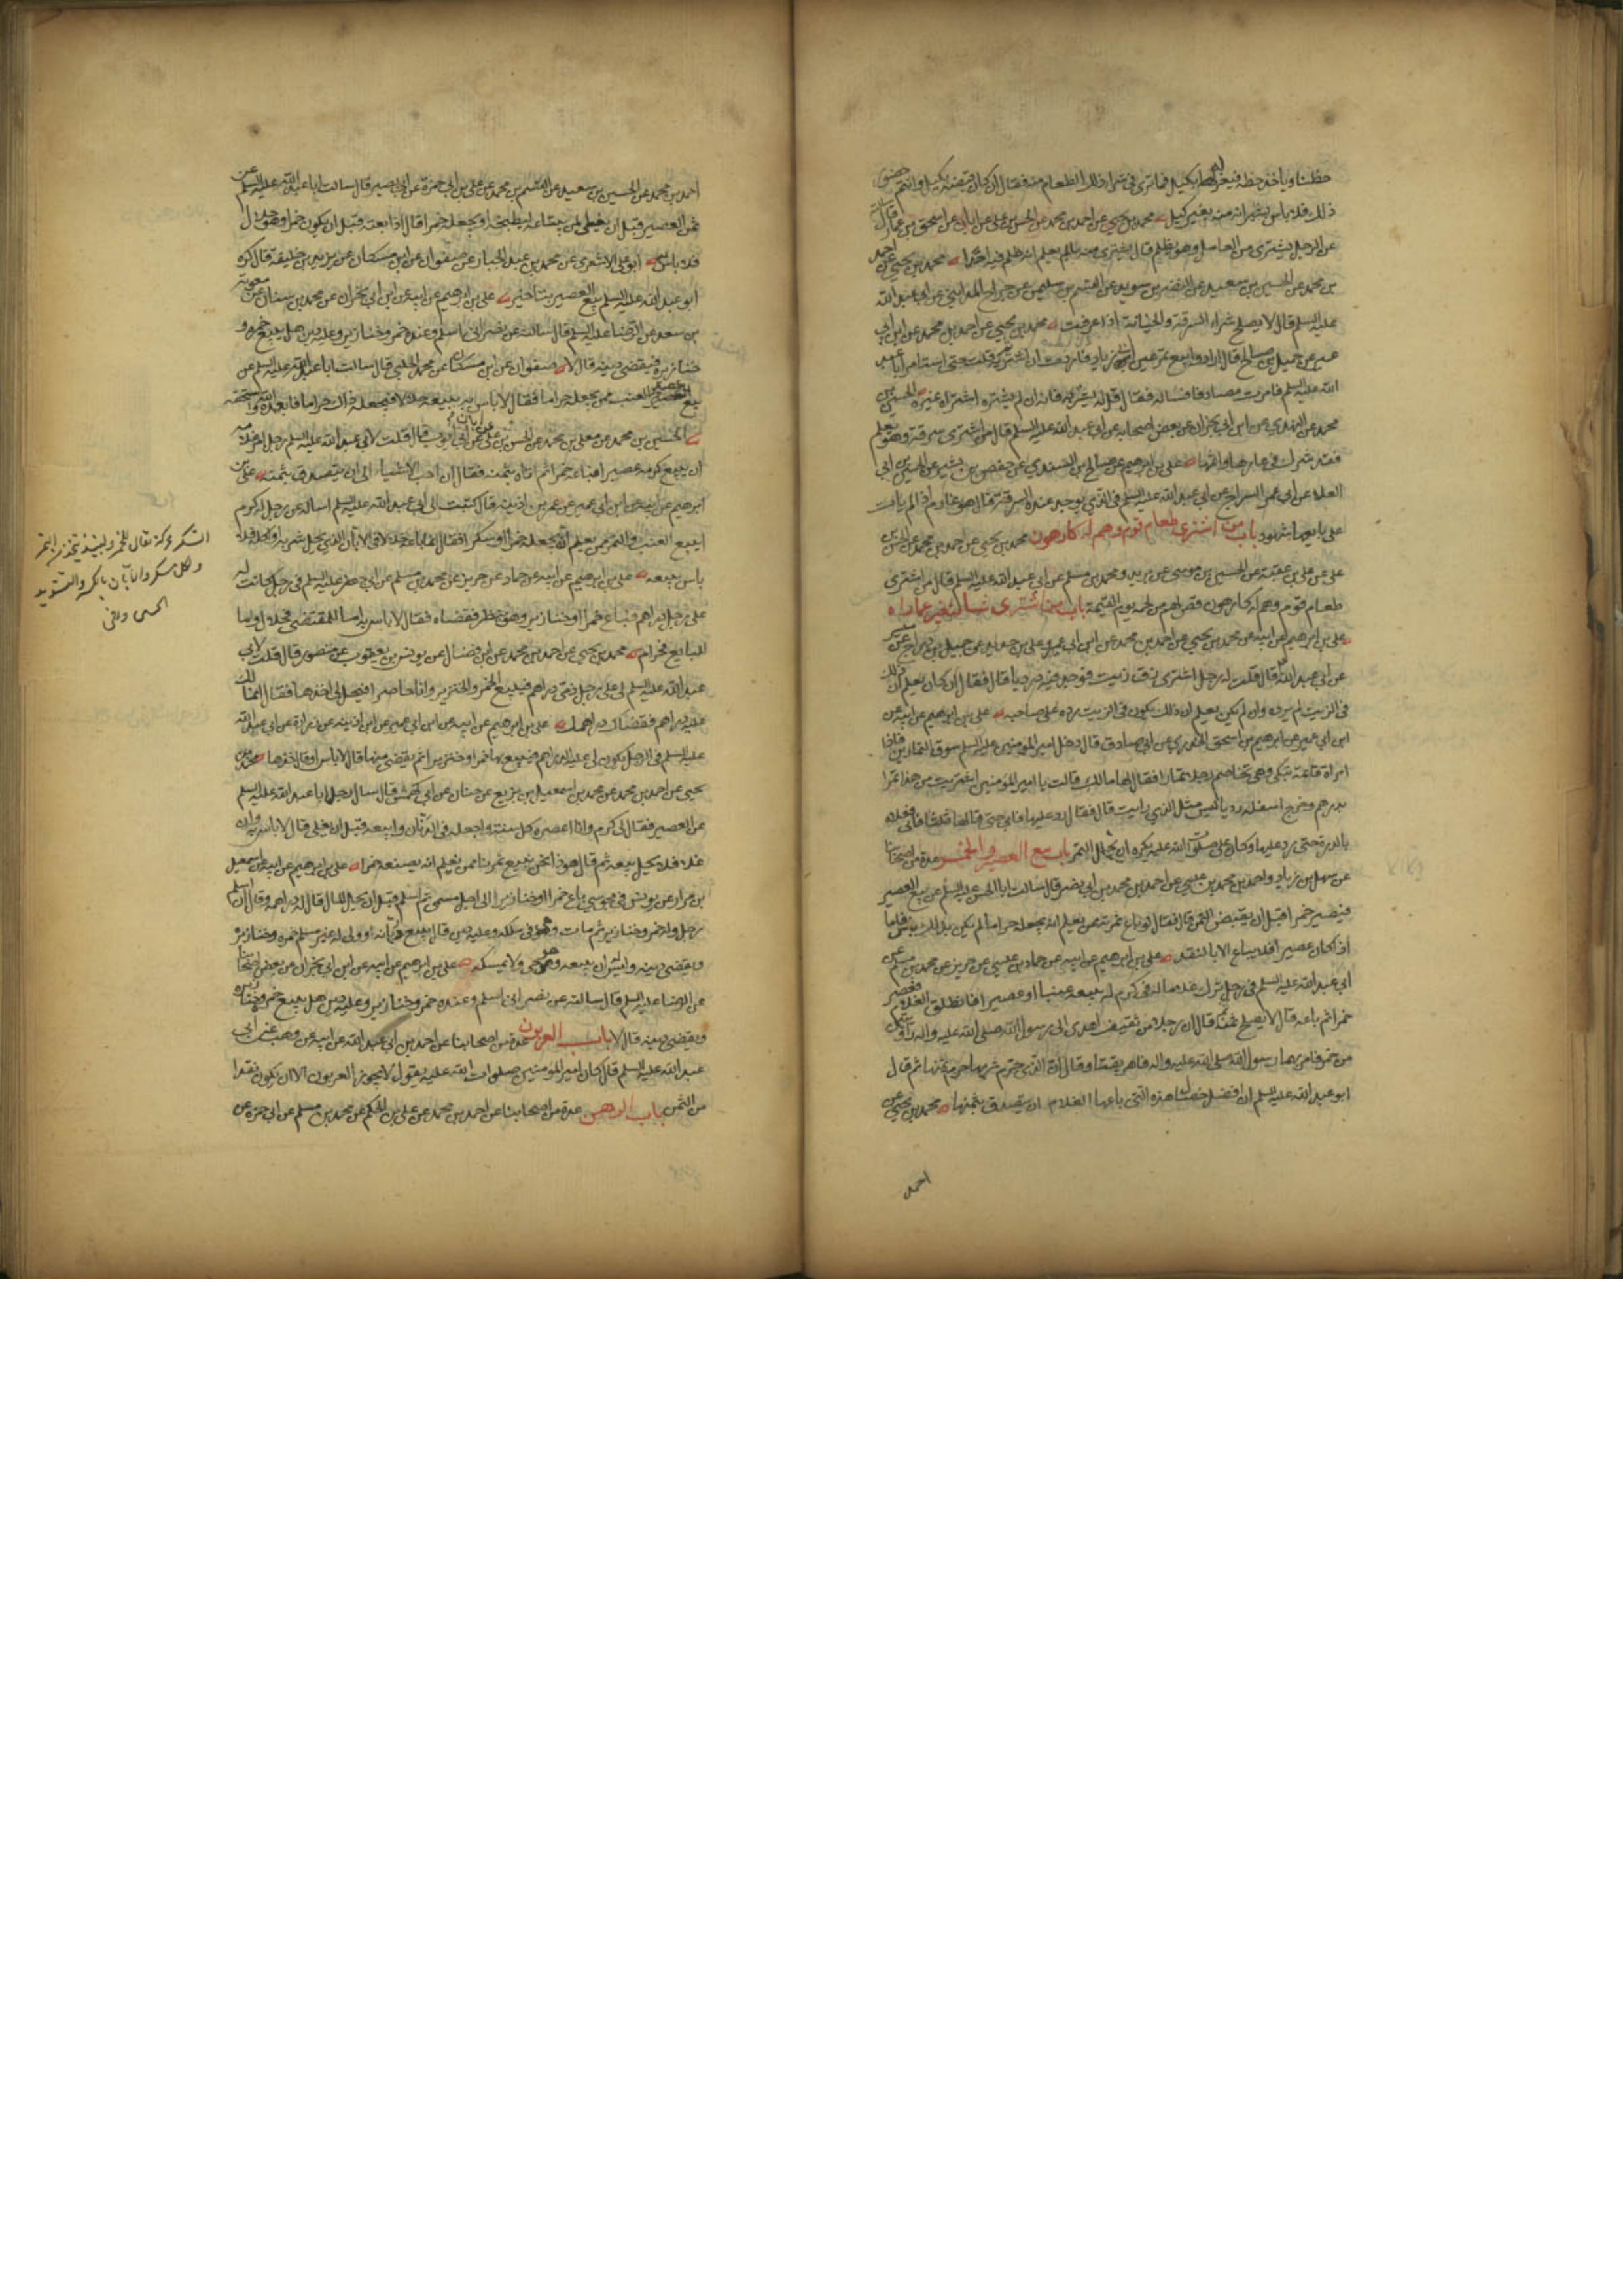 حظنا ويأخذ حظه فيعزله بكيل فما ترى في شراء ذلك الطعام منه فقال ان كان قبضه بكيل وانتم حضور
ذلك فلا باس بشرائه منه بغير كيل محمد بن يحيى عن احمد بن محمد عن الحسن بن علي عن ابان عن اسحق بن عمار قال سالته
عن الرجل يشتري من العامل وهو يظلم قال يشتري منه ما لم يعلم انه ظلم فيه احدا محمد بن يحيى عن احمد
بن محمد عن الحسين بن سعيد عن النضر بن سويد عن القسم بن سليمن عن جراح المدائني عن ابي عبد الله
عليه السلم قال لا يصلح شراء السرقة والخيانة اذا عرفت محمد بن يحيى عن احمد بن محمد عن ابن ابي
عمير عن جميل بن صالح قال ارادوا بيع تمر عين ابي زياد فاردت ان اشتريه فقلت حتى استامر ابا عبد
الله عليه السلم فامرت مصادفا فساله فقال قل له يشتريه فانه ان لم يشتره اشتراه غيره الحسين بن
محمد عن النهدي عن ابن ابي نجران عن بعض اصحابه عن ابي عبد الله عليه السلم قال من اشترى سرقة وهو يعلم
فقد شرك في عارها واثمها علي بن ابرهيم عن صالح بن السندي عن جعفر بن بشير عن الحسين بن ابي
العلاء عن ابي عمر السراج عن ابي عبد الله عليه السلم في الذي يوجد عنده السرقة قال هو غارم اذا لم يات
على بايعها شهود باب من اشترى طعام قوم وهم له كارهون محمد بن يحيى عن احمد بن محمد عن الحسن بن
علي عن علي بن عقبة عن الحسين بن موسى عن بريد ومحمد بن مسلم عن ابي عبد الله عليه السلم قال من اشترى
طعام قوم وهم له كارهون قص لهم من لحمه يوم القيمة باب من اشترى شيا فتغير عما راه
علي بن ابرهيم عن ابيه عن محمد بن يحيى عن احمد بن محمد عن ابن ابي عمير وعلي بن حديد عن جميل بن دراج عن ميسر
عن ابي عبد الله قال قلت له رجل اشترى زق زيت فوجد فيه درديا قال فقال ان كان يعلم ان ذلك
في الزيت لم يرده وان لم يكن يعلم ان ذلك يكون في الزيت رده على صاحبه علي بن ابرهيم عن ابيه عن
ابن ابي عمير عن ابرهيم بن اسحق الخدري عن ابي صادق قال دخل امير المؤمنين عليه السلم سوق التمارين فاذا
امراة قائمة تبكي وهي تخاصم رجلا تمارا فقال لها مالك قالت يا امير المؤمنين اشتريت من هذا تمرا
بدرهم وخرج اسفله رديا ليس مثل الذي رايت قال فقال رد عليها فابى حتى قالها ثلثا فابى فعلاه
بالدرة حتى رد عليها وكان علي صلوات الله عليه يكره ان يجلل التمر باب بيع العصير والخمر عدة من اصحابنا
عن سهل بن زياد واحمد بن محمد بن عيسى عن احمد بن محمد بن ابي نصر قال سالت ابا الحسن عليه السلم عن بيع العصير
فيصير خمرا قبل ان يقبض الثمن قال فقال لو باع ثمرته ممن يعلم انه يجعله حراما لم يكن بذلك باس فاما
اذا كان عصيرا فلا يباع الا بالنقد علي بن ابرهيم عن ابيه عن حماد بن عيسى عن حريز عن محمد بن مسلم عن
ابي عبد الله عليه السلم في رجل ترك غلاما له في كرم له يبيعه عنبا او عصيرا فانطلق الغلام فعصر
خمرا ثم باعه قال لا يصلح ثمنه ثم قال ان رجلا من ثقيف اهدى الى رسول الله صلى الله عليه واله راويتين
من خمر فامر بهما رسول الله صلى الله عليه واله فاهريقتا وقال ان الذي حرم شربها حرم ثمنها ثم قال
ابو عبد الله عليه السلم ان افضل خصال هذه التي باعها الغلام ان يتصدق بثمنها محمد بن يحيى عن
احمد
احمد بن محمد عن الحسين بن سعيد عن القسم بن محمد عن علي بن ابي حمزة عن ابي بصير قال سالت ابا عبد الله عليه السلم عن
ثمن العصير قبل ان يغلي لمن يبتاعه ليطبخه او يجعله خمرا قال اذا بعته قبل ان يكون خمرا وهو حلال
فلا باس ابو علي الاشعري عن محمد بن عبد الجبار عن صفوان عن ابن مسكان عن يزيد بن خليفة قال كره
ابو عبد الله عليه السلم بيع العصير بتاخير علي بن ابرهيم عن ابيه عن ابن ابي نجران عن محمد بن سنان عن معوية
بن سعد عن الرضا عليه السلم قال سالته عن نصراني اسلم وعنده خمر وخنازير وعليه دين هل يبيع خمره و
خنازيره فيقضي دينه قال لا صفوان عن ابن مسكان عن محمد الحلبي قال سالت ابا عبد الله عليه السلم عن
بيع عصير العنب ممن يجعله حراما فقال لا باس به يبيعه حلالا فيجعله ذاك حراما فابعده الله واسحقه
الحسين بن محمد عن معلى بن محمد عن الحسن بن علي عن ابان عن ابي ايوب قال قلت لابي عبد الله عليه السلم رجل امر غلامه
ان يبيع كرمه عصيرا فباعه خمرا ثم اتاه بثمنه فقال ان احب الاشياء الى ان يتصدق بثمنه علي بن
ابرهيم عن ابيه عن ابن ابي عمير عن عمر بن اذينة قال كتبت الى ابي عبد الله عليه السلم اساله عن رجل له كرم
ايبيع العنب والتمر ممن يعلم انه يجعله خمرا او سكرا فقال انما باعه حلالا في الابان الذي يحل شربه او اكله فلا
باس ببيعه علي بن ابرهيم عن ابيه عن حماد عن حريز عن محمد بن مسلم عن ابي جعفر عليه السلم في رجل كانت له
على رجل دراهم فباع خمرا او خنازير وهو ينظر فقضاه فقال لا باس به اما للمقتضي فحلال واما
للبايع فحرام محمد بن يحيى عن احمد بن محمد عن ابن فضال عن يونس بن يعقوب عن منصور قال قلت لابي
عبد الله عليه السلم لي على رجل ذمي دراهم فيبيع الخمر والخنزير وانا حاضر افيحل لي اخذها فقال انما لك
عليه دراهم فقضاك دراهمك علي بن ابرهيم عن ابيه عن ابن ابي عمير عن ابن اذينة عن زرارة عن ابي عبد الله
عليه السلم في الرجل يكون لي عليه الدراهم فيبيع بها خمرا وخنزيرا ثم يقضي منها قال لا باس او قال خذها محمد بن
يحيى عن احمد بن محمد عن محمد بن اسمعيل بن بزيع عن حنان عن ابي كهمش قال سال رجل ابا عبد الله عليه السلم
عن العصير فقال لي كرم وانا اعصره كل سنة واجعله في الدنان وابيعه قبل ان يغلي قال لا باس به وان
غلا فلا يحل بيعه ثم قال هو ذا نحن نبيع تمرنا ممن نعلم انه يصنعه خمرا علي بن ابرهيم عن ابيه عن اسمعيل
بن مرار عن يونس في مجوسي باع خمرا او خنازير الى اجل مسمى ثم اسلم قبل ان يحل المال قال له دراهمه وقال ان اسلم
رجل وله خمر وخنازير ثم مات وهي في ملكه وعليه دين قال يبيع ديانه او ولي له غير مسلم خمره وخنازيره
ويقضي دينه وليس له ان يبيعه وهو حي ولا يمسكه علي بن ابرهيم عن ابيه عن ابن ابي نجران عن بعض اصحابنا
عن الرضا عليه السلم قال سالته عن نصراني اسلم وعنده خمر وخنازير وعليه دين هل يبيع خمره وخنازيره
ويقضي دينه قال لا باب العربون عدة من اصحابنا عن احمد بن ابي عبد الله عن ابيه عن وهب عن ابي
عبد الله عليه السلم قال كان امير المؤمنين صلوات الله عليه يقول لا يجوز العربون الا ان يكون نقدا
من الثمن باب الرهن عدة من اصحابنا عن احمد بن محمد عن علي بن الحكم عن محمد بن مسلم عن ابي حمزة عن
السكر محركة يقال للخمر ولنبيذ يتخذ من التمر
ولكل مسكر والابان بالكسر والتشديد
الحين وافي